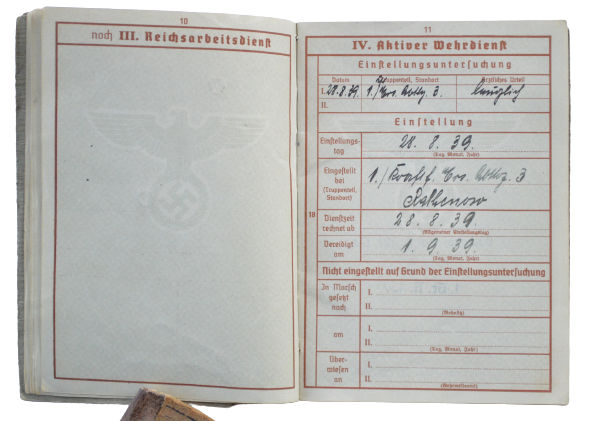 10
noch III. Reichsarbeitsdienst
11
IV. Aktiver Wehrdienst
Einstellungsuntersuchung
Datum Truppenteil, Standort Ärztliches Urteil
I. 28.8.39. 1./Ers. Abtlg. 3. tauglich
II.
Einstellung
Einstellungstag 28. 8. 39.
(Tag, Monat, Jahr)
Eingestellt
bei
(Truppenteil,
Standort)
1./Kraftf. Ers. Abtlg. 3
Rathenow
18
Dienstzeit
rechnet ab
28. 8. 39.
Vereidigt
am
1. 9. 39.
(Tag, Monat, Jahr)
Nicht eingestellt auf Grund der Einstellungsuntersuchung
In Marsch
gesetzt
nach
I.
II.
am
I.
II.
(Tag, Monat, Jahr)
Über-
wiesen
an
I.
II.